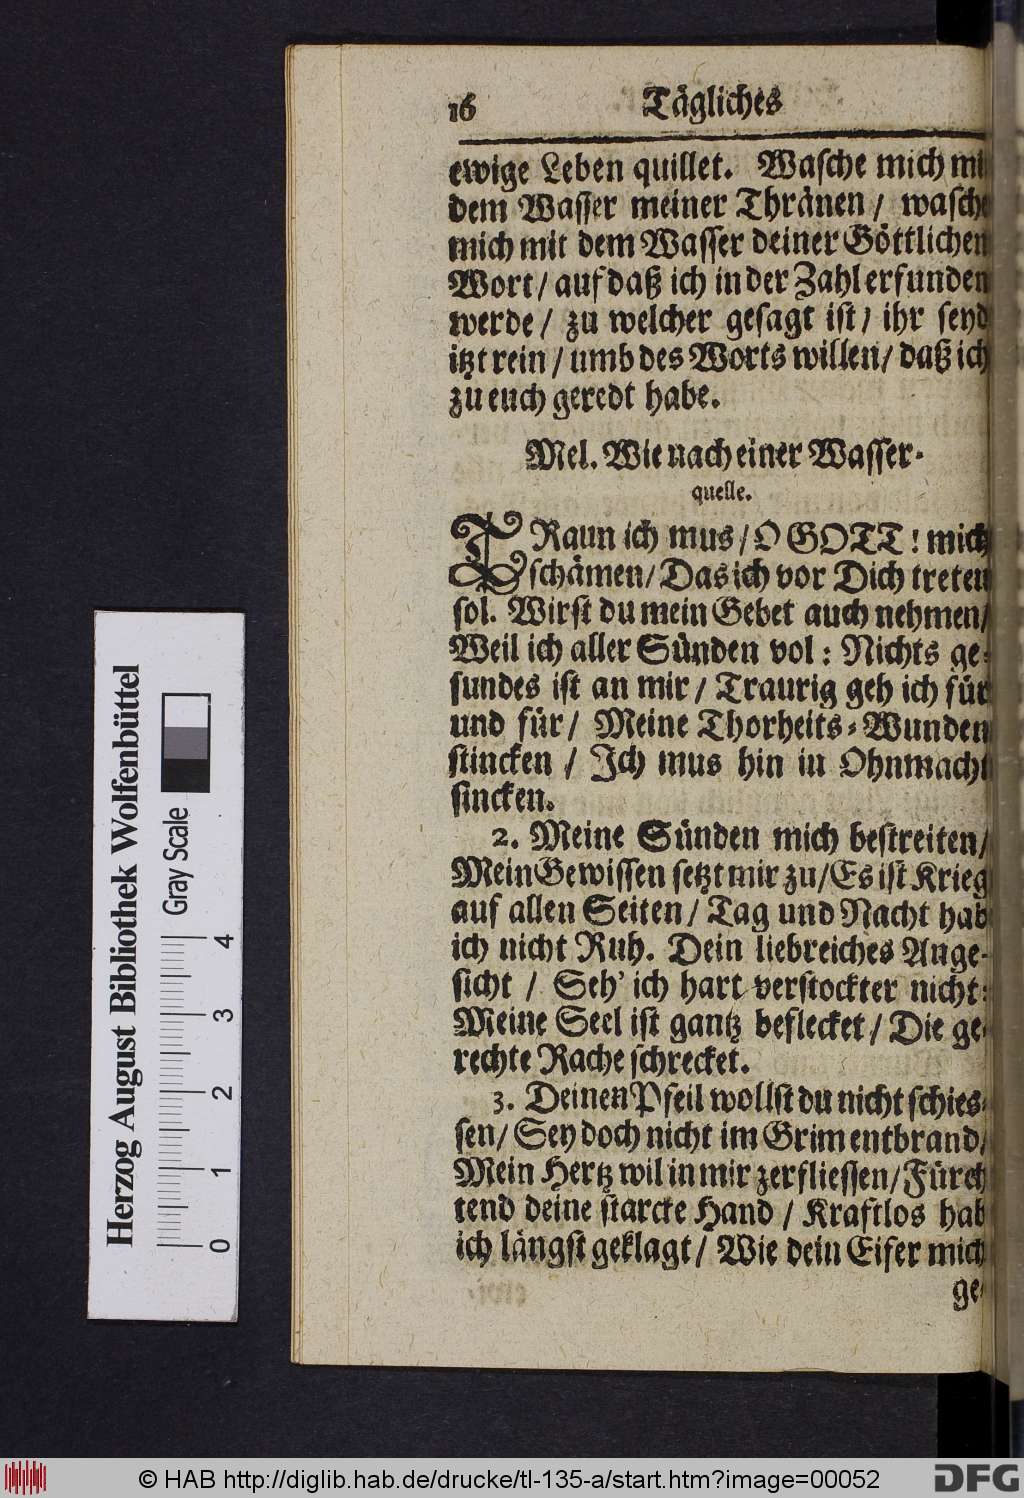 16 Tägliches
ewige Leben quillet. Wasche mich mit
dem Wasser meiner Thränen / wasche
mich mit dem Wasser deiner Göttlichen
Wort / auf daß ich in der Zahl erfunden
werde / zu welcher gesagt ist / ihr seyd
itzt rein / umb des Worts willen / daß ich
zu euch geredt habe.
Mel. Wie nach einer Wasser-
quelle.
TRaun ich mus / O GOTT! mich
schämen / Das ich vor Dich treten
sol. Wirst du mein Gebet auch nehmen /
Weil ich aller Sünden vol: Nichts ge-
sundes ist an mir / Traurig geh ich für
und für / Meine Thorheits-Wunden
stincken / Ich mus hin in Ohnmacht
sincken.
2. Meine Sünden mich bestreiten /
Mein Gewissen setzt mir zu / Es ist Krieg
auf allen Seiten / Tag und Nacht hab
ich nicht Ruh. Dein liebreiches Ange-
sicht / Seh' ich hart verstockter nicht:
Meine Seel ist gantz beflecket / Die ge-
rechte Rache schrecket.
3. Deinen Pfeil wollst du nicht schies-
sen / Sey doch nicht im Grim entbrand /
Mein Hertz wil in mir zerfliessen / Fürch
tend deine starcke Hand / Kraftlos hab
ich längst geklagt / Wie dein Eifer mich
ge-
Herzog August Bibliothek Wolfenbüttel
Gray Scale
0 1 2 3 4
© HAB http://diglib.hab.de/drucke/tl-135-a/start.htm?image=00052
DFG